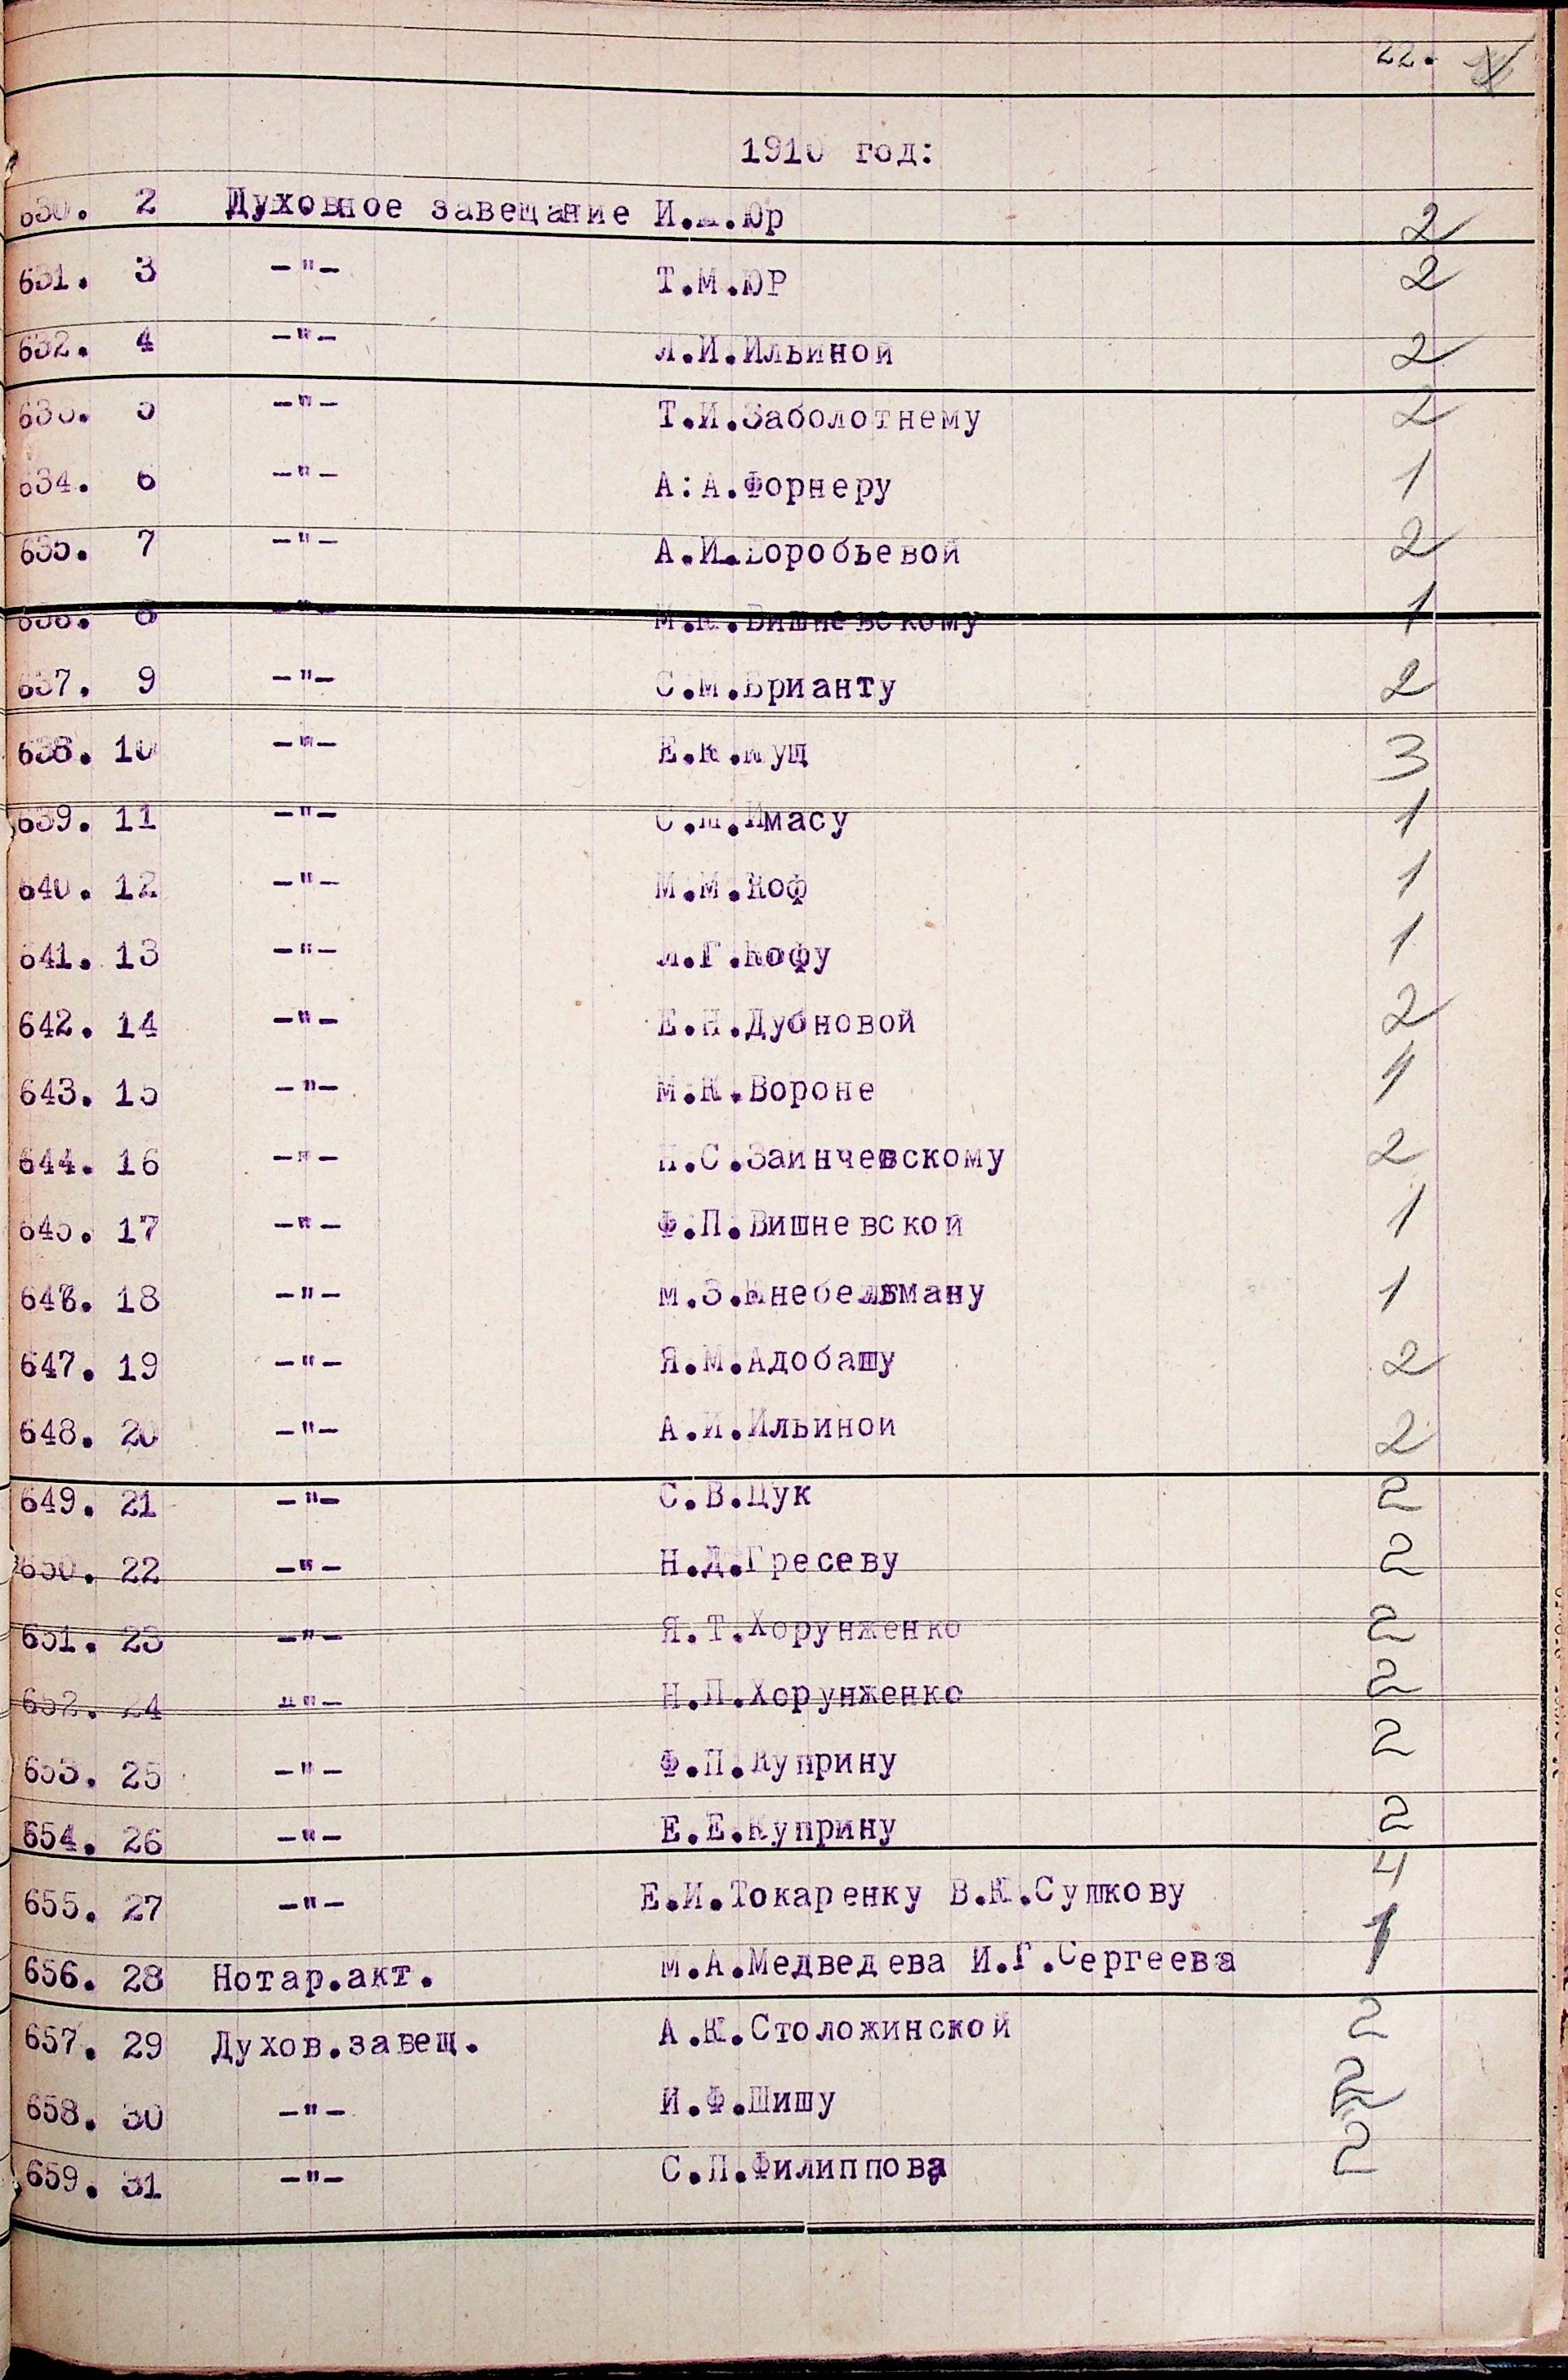 22.
1910 год:
630. 2 Духовное завещание И. .Юр 2
631. 3 -"- Т.М.ЮР 2
632. 4 -"- Л.И.Ильиной 2
633. 5 -"- Т.И.Заболотнему 2
634. 6 -"- А:А.Форнеру 1
635. 7 -"- А.И.Воробьевой 2
636. 8 -"- М.К.Вишневскому 1
637. 9 -"- С.М.Брианту 2
638. 10 -"- Е.К.Кущ 3
639. 11 -"- С.Ш.Имасу 1
640. 12 -"- М.М.Коф 1
641. 13 -"- Л.Г.Кофу 1
642. 14 -"- Е.Н.Дубновой 2
643. 15 -"- М.К.Вороне 1
644. 16 -"- Н.С.Заинчевскому 2
645. 17 -"- Ф.П.Вишневской 1
646. 18 -"- М.З.Кнебельману 1
647. 19 -"- Я.М.Адобашу 2
648. 20 -"- А.И.Ильиной 2
649. 21 -"- С.В.Цук 2
650. 22 -"- Н.Д.Гресеву 2
651. 23 -"- Я.Т.Хорунженко 2
652. 24 -"- Н.П.Хорунженко 2
653. 25 -"- Ф.П.Куприну 2
654. 26 -"- Е.Е.Куприну 2
655. 27 -"- Е.И.Токаренку В.К.Сушкову 4
656. 28 Нотар.акт. М.А.Медведева И.Г.Сергеева 1
657. 29 Духов.завещ. А.К.Столожинской 2
658. 30 -"- И.Ф.Шишу 2
659. 31 -"- С.П.Филиппова 2